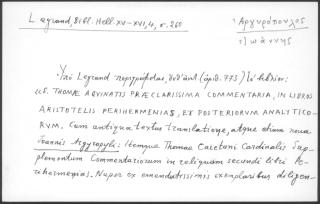 Legrand, Bibl. Hell. XV-XVI, 4, σ. 260
Ἀργυρόπουλος
Ἰωάννης
Ὑπὸ Legrand περιγράφεται, ὑπ' ἀριθ. 773
S. THOMAE AQVINATIS PRÆCLARISSIMA COMMENTARIA, IN LIBROS
ARISTOTELIS PERIHERMENIAS, ET POSTERIORVM ANALYTICO-
RVM. Cum antiqua textus translatione, atque etiam noua
Joannis Argyropyli: Itemque Thomae Caietani Cardinalis Sup-
plementum Commentariorum in reliquum secundi libri Pe-
rihermenias. Nuper ex emendatissimis exemplaribus diligen-